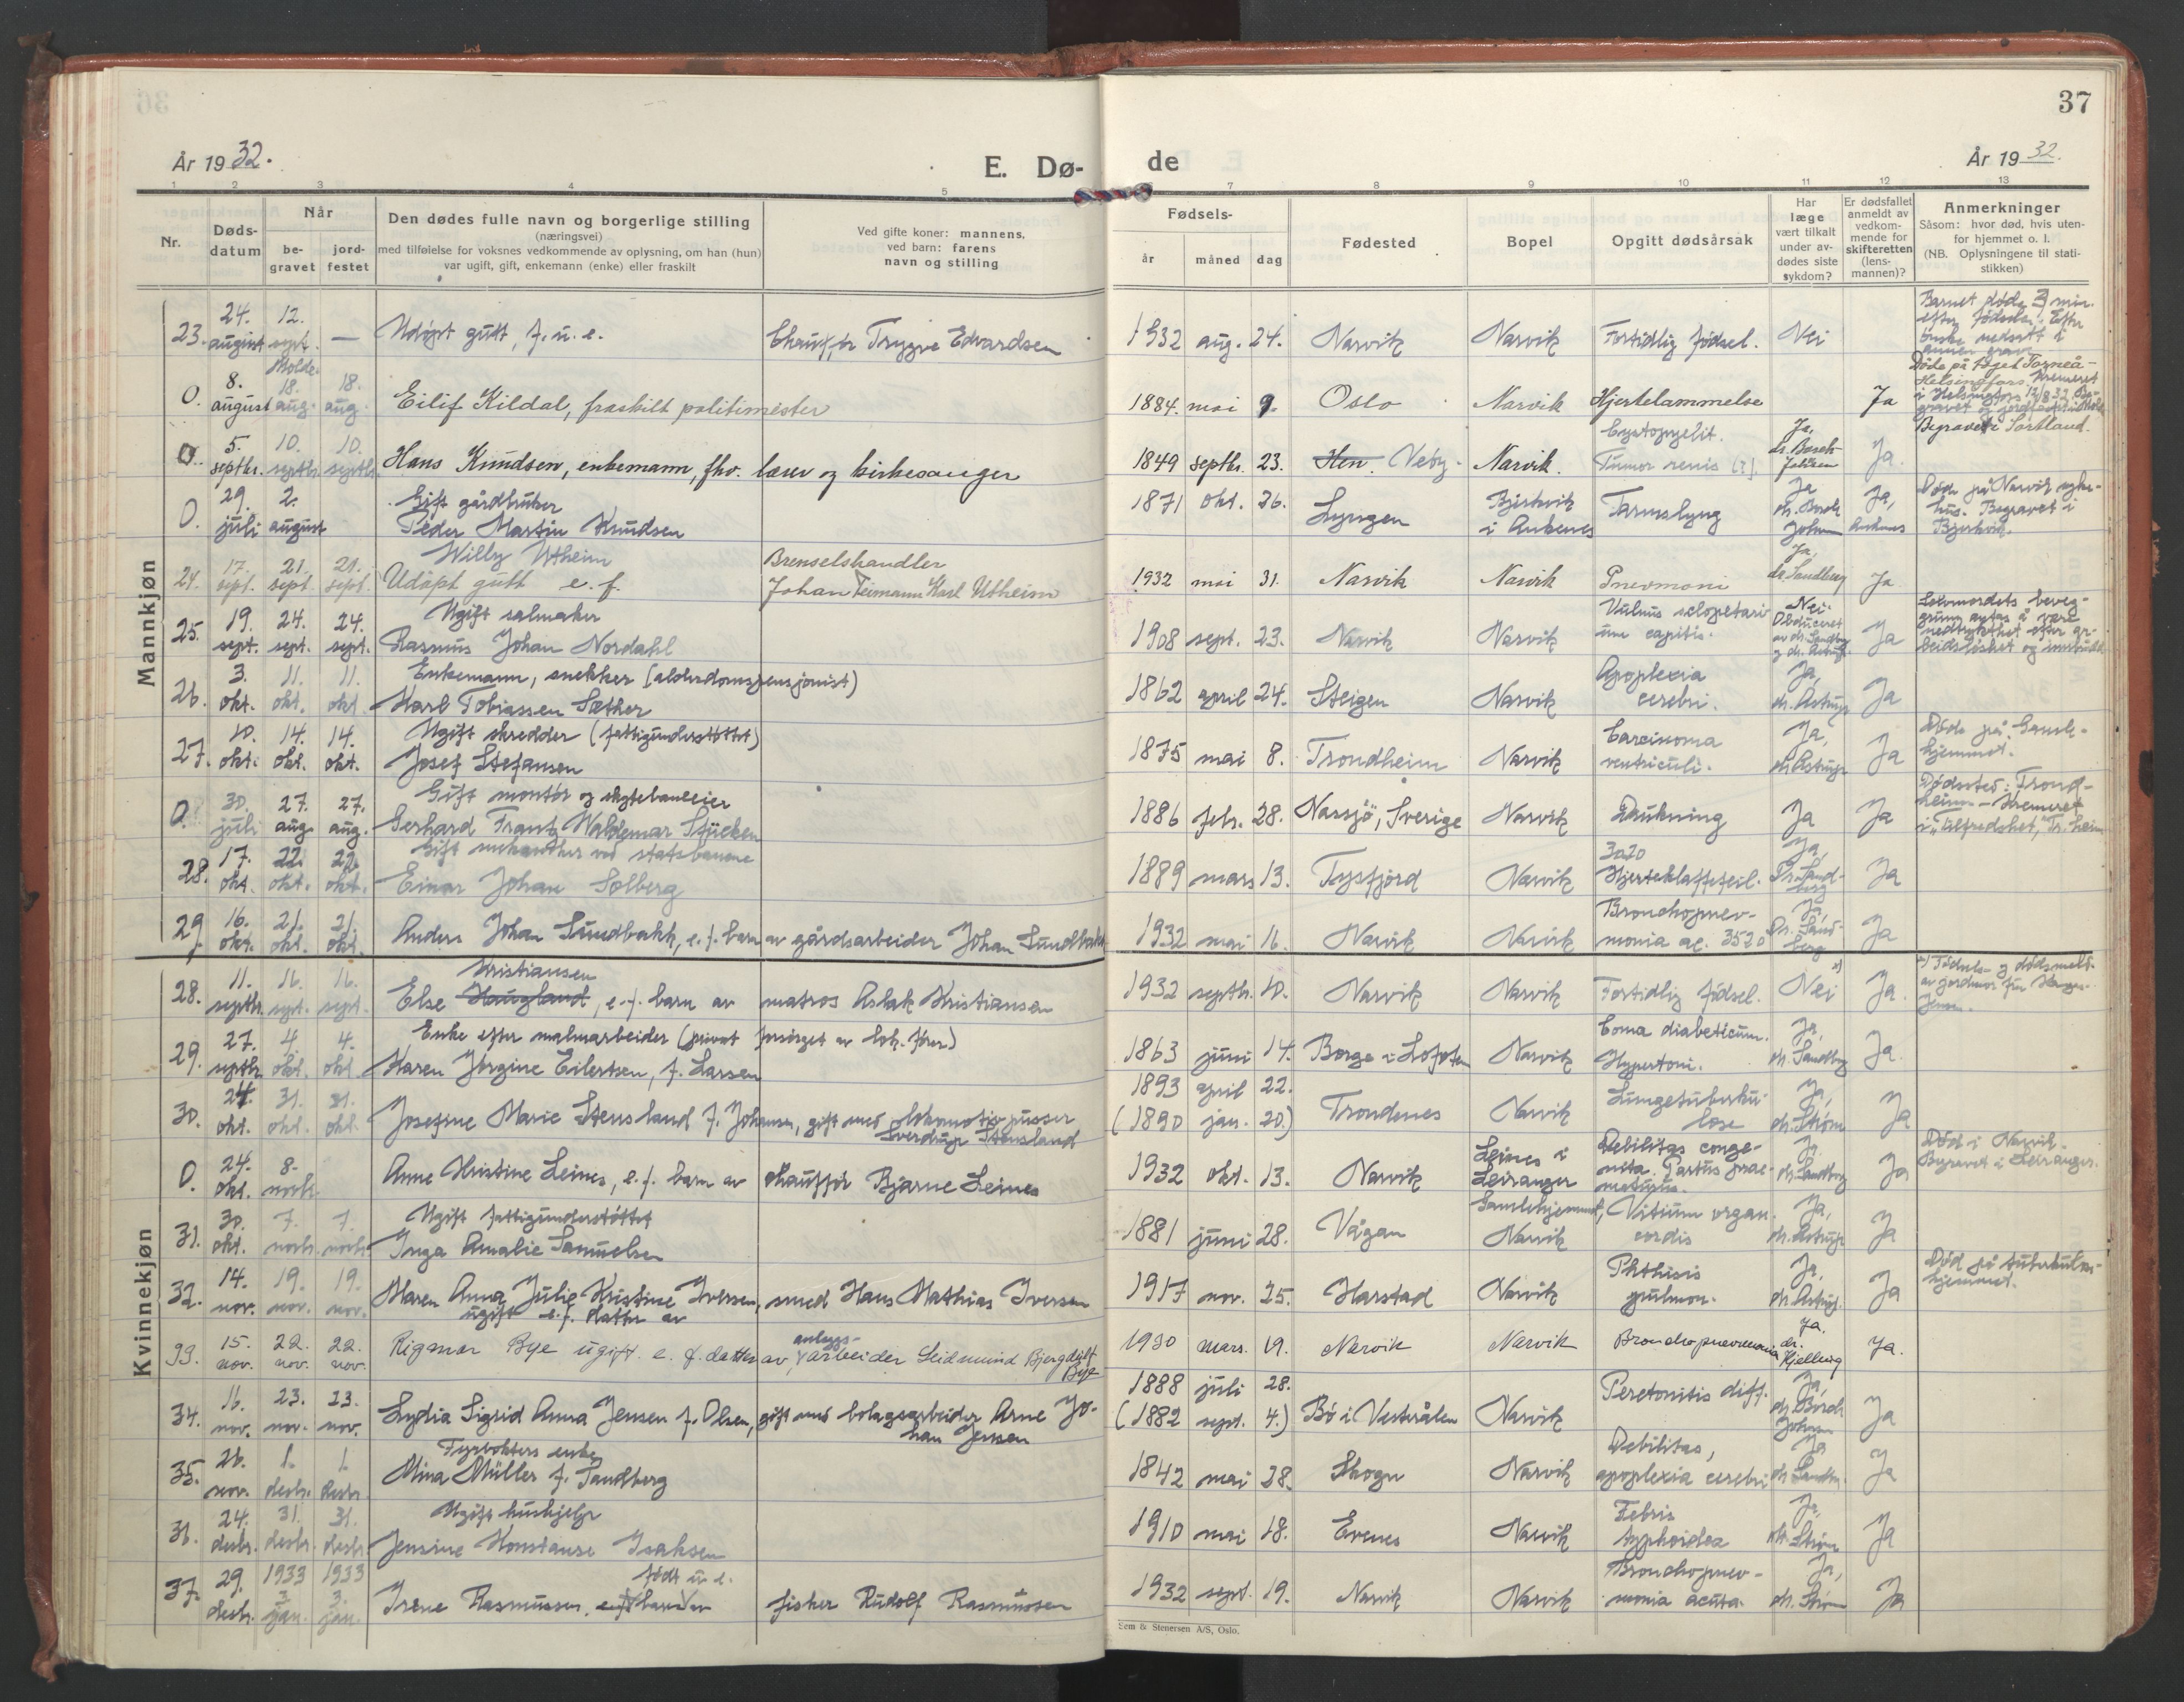 37
År 1932.
E. Dø-
de
År 1932.
1 2 3 4 5 7 8 9 10 11 12 13
Nr.
Døds-
datum
Når
be-
gravet
jord-
festet
Den dødes fulle navn og borgerlige stilling
(næringsvei)
med tilføielse for voksnes vedkommende av oplysning, om han (hun)
var ugift, gift, enkemann (enke) eller fraskilt
Ved gifte koner: mannens,
ved barn: farens
navn og stilling
Fødsels-
år måned dag
Fødested
Bopel
Opgitt dødsårsak
Har
læge
vært tilkalt
under av-
dødes siste
sykdom?
Er dødsfallet
anmeldt av
vedkom-
mende for
skifteretten
(lens-
mannen)?
Anmerkninger
Såsom: hvor død, hvis uten-
for hjemmet o. l.
(NB. Oplysningene til stati-
stikken)
Mannkjøn
23. 24. august 12. sept. — Udøpt gutt, f. u. e. Chauffør Trygve Edvardsen 1932 aug. 24. Narvik Narvik Fortidlig fødsel. Nei Barnet døde 3 min. efter fødselen. Efter ønske nedsatt i annen grav.
0. 8. august Molde 18. aug. 18. aug. Eilif Kildal, fraskilt politimester 1884. mai 9. Oslo Narvik Hjertelammelse Ja Døde på toget Torneå-Helsingfors. Kremeret i Helsingfors
0. 5. septbr. 10. septbr. 10. septbr. Hans Knudsen, enkemann, fhv. lærer og kirkesanger 1849 septbr. 23. Narvik. Cystopyelit. Tumor renis (?). Ja, Ja. Begravet i Sortland.
0. 29. juli 2. august Gift gårdbruker
Peder Martin Knudsen 1871 okt. 26. Lyngen Bjerkvik i Ankenes Tarmslyng Ja Ja, Ankenes Døde på Narvik sykehus. Begravet i Bjerkvik.
24. 17. sept. 21. sept. 21. sept. Willy Utheim
Udøpt gutt e. f. Brenselshandler
Johan Karl Utheim 1932 mai 31. Narvik Narvik Pnevmoni Ja, dr. Sandberg Ja.
25. 19. sept. 24. sept. 24. sept. Ugift salmaker
Rasmus Johan Nordahl 1908 sept. 23. Narvik Narvik Vulnus sclopetarium capitis. Nei. Obduceret av dr. Sandberg og dr. Astrup. Ja
26. 3. okt. 11. okt. 11. okt. Enkemann, snekker (alderdomspensjonist)
Karl Tobiassen Sæther 1862 april 24. Steigen Narvik Apoplexia cerebri. Ja, dr. Astrup Ja
27. 10. okt. 14. okt. 14. okt. Ugift skredder (fattigunderstøttet)
Josef Stefansen 1875 mai 8. Trondheim Narvik Carcinoma ventriculi. Ja, dr. Astrup Ja Døde på Gamlehjemmet.
0. 30. juli 27. aug. 27. aug. Gift montør og skytebaneeier
Gerhard Frantz Waldemar Stücken 1886 febr. 28. Nassjö, Sverige Narvik Drukning Ja Ja Dødssted: Trondheim – Kremeret i "Tilfredshet,"
28. 17. okt. 22. okt. 22. okt. Gift
Einar Johan Solberg 1889 mars 13. Tysfjord Narvik Hjerteklaffefeil. Ja, Dr. Sandberg Ja
29. 16. okt. 21. okt. 21. okt. Anders Johan Sundbakk, e. f. barn av gårdsarbeider Johan Sundbakk 1932 mai 16. Narvik Narvik Bronchopnevmonia ac. 3520 Ja, Dr. Sandberg Ja
Kvinnekjøn
28. 11. septbr. 16. sept. 16. sept. Kristiansen
Else Haugland, e. f. barn av matros Aslak Kristiansen 1932 septbr. 10. Narvik Narvik Fortidlig fødsel. Nei x) Ja.
29. 27. septbr. 4. okt. 4. okt. Enke efter malmarbeider (privat forsørget av lok.-fører)
Karen Jørgine Eilertsen, f. Larsen 1863 juni 14. Borge i Lofoten Narvik Coma diabeticum. Hypertoni. Ja, dr. Sandberg Ja.
30. 24. okt. 31. okt. 31. okt. Josefine Marie Stensland f. Johansen, gift med lokomotivpusser
Sverdrup Stensland 1893 april 22. (1890 jan. 20.) Trondenes Narvik Lungetuberkulose Ja, dr. Strøm Ja
0. 24. okt. 8. novbr. Anne Kristine Leines, e. f. barn av chauffør Bjarne Leines 1932 okt. 13. Narvik Leines i Leiranger Debilitas congenita. Partus praematurus. Ja dr. Sandberg Ja Død i Narvik. Begravet i Leiranger.
31. 30. okt. 7. novbr. 7. novbr. Ugift fattigunderstøttet
Inga Amalie Samuelsen 1881 juni 28. Vågan Gamlehjemmet, Narvik Vitium organ. cordis Ja, dr. Astrup Ja
32. 14. nov. 19. nov. 19. nov. Maren Anna Julie Kristine Iversen, smed Hans Mathias Iversen
ugift e. f. datter av 1917 nov. 25. Harstad Narvik Phthisis pulmon. Ja, dr. Astrup. Ja Død på tuberkulosehjemmet.
33. 15. nov. 22. nov. 22. nov. Rigmor Bye ugift. e. f. datter av anleggs-
arbeider Leidmund Bye 1930 mars. 19. Narvik Narvik Bronchopnevmonia Ja. dr. Kjelling Ja.
34. 16. nov. 23. nov. 23. nov. Lydia Sigrid Anna Jensen f. Olsen, gift med bolagsarbeider Arne Jo-
han Jensen 1888 juli 28. (1882 sept. 4.) Bø i Vesterålen Narvik Peretonitis diff. Ja, Ja
35. 26. nov. 1. desbr. 1. desbr. Fyrbøters enke
Mina Müller f. Sandberg 1842 mai 28. Skogn Narvik Debilitas, apoplexia cerebri Ja Ja
36. 24. desbr. 31. desbr. 31. desbr. Ugift hushjelp
Jensine Konstanse Isaksen 1910 mai 18. Evenes Narvik Febris typhoidea Ja, dr. Strøm Ja
37. 29. desbr. 1933 3. jan. 1933 3. jan. født u. e.
Irene Rasmussen, barn av fisker Rudolf Rasmussen 1932 sept. 19. Narvik Narvik Bronchopnevmonia acuta. Ja, dr. Strøm Ja
Sem & Stenersen A/S, Oslo.